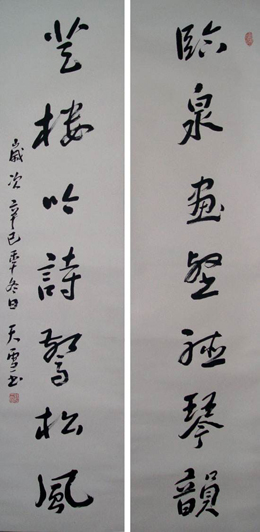 臨泉畫壑聽琴韻
登樓吟詩驚松風
歲次辛巳年冬日天雪书